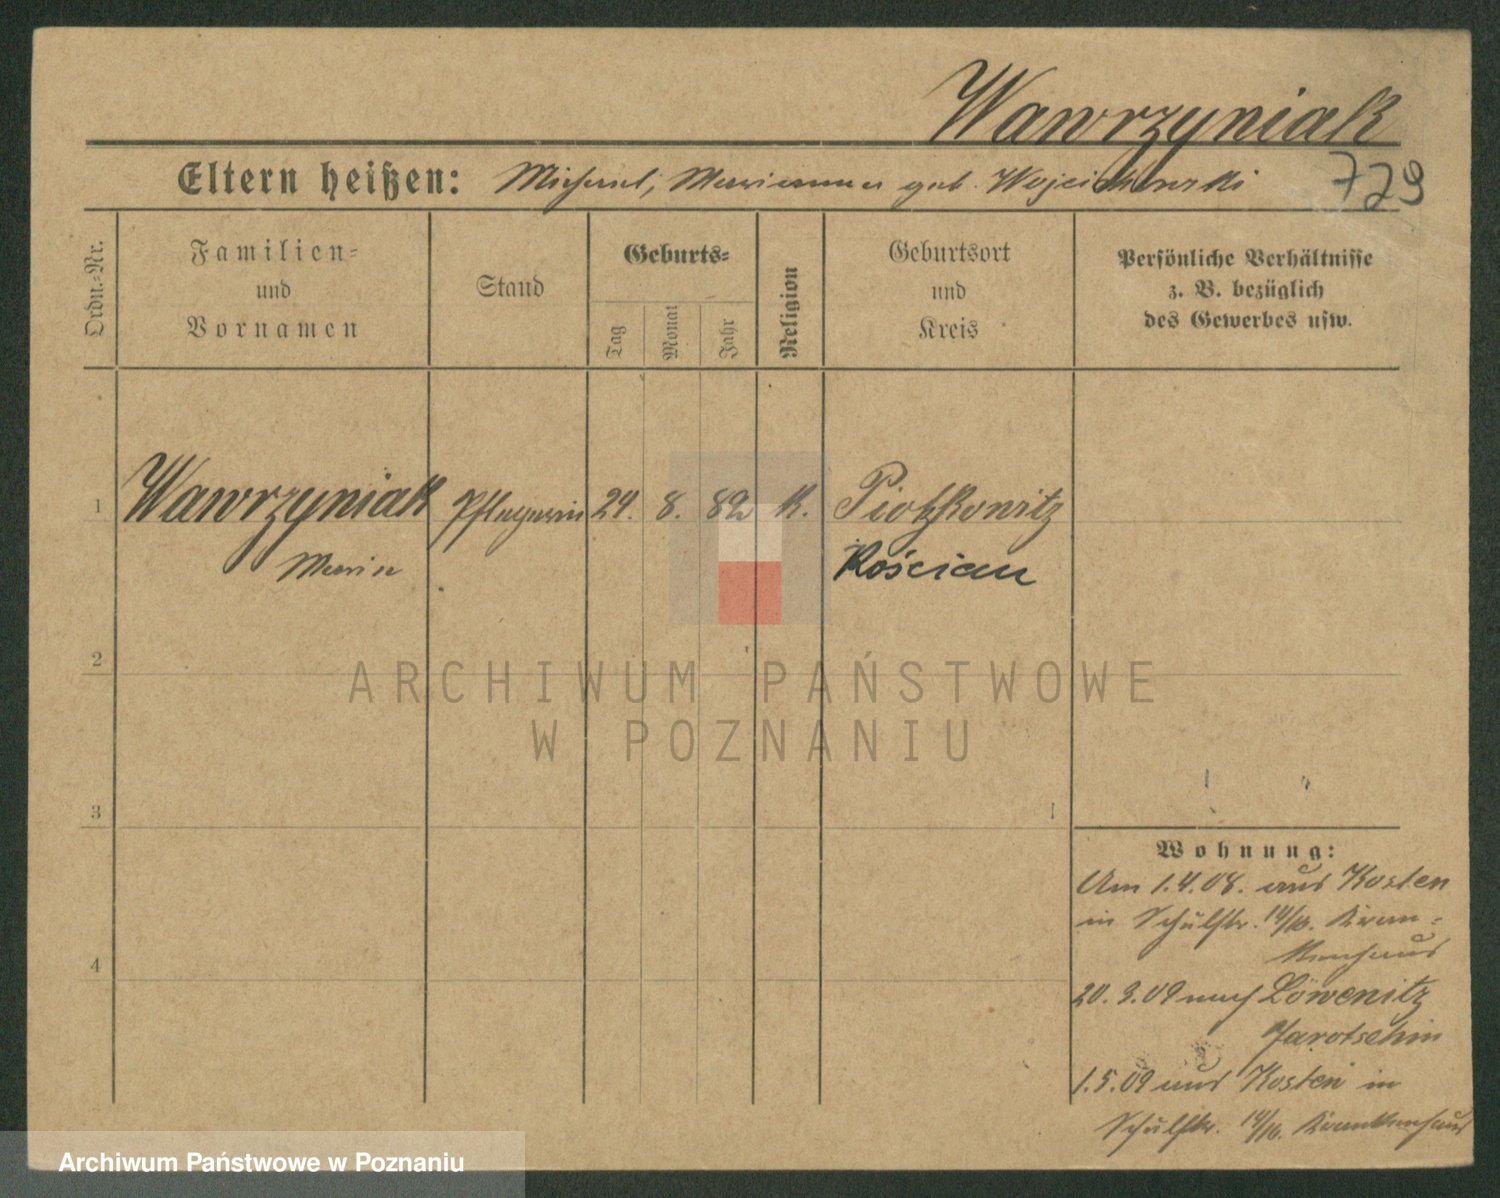 Wawrzyniak
Eltern heißen: Michael, Marianna geb. Wojciechowski 729
Ordn.-Nr.
Familien-
und
Vornamen
Stand
Geburts-
Tag
Monat
Jahr
Religion
Geburtsort
und
Kreis
Persönliche Verhältnisse
z. B. bezüglich
des Gewerbes usw.
1 Wawrzyniak Pflegerin 24. 8. 82 K. Piotrkowitz
Maria Kościan
2
3
4
Wohnung:
Am 1.4.08. aus Kosten
in Schulstr. 14/16. Kran-
kenhaus
20.3.09 nach Löwenitz
Jarotschin
1.5.09 aus Kosten in
Schulstr. 14/16. Krankenhaus
ARCHIWUM PAŃSTWOWE
W POZNANIU
Archiwum Państwowe w Poznaniu